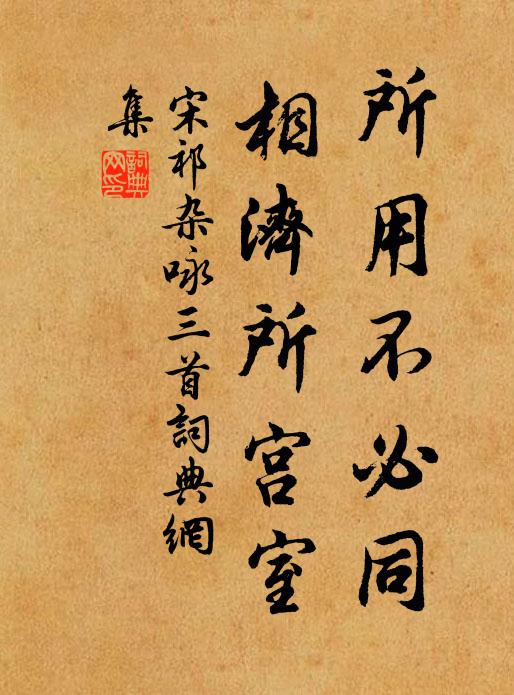 所用不必同
相濟所宫室
宋祁杂咏三首詞典網
集
詞典
网印